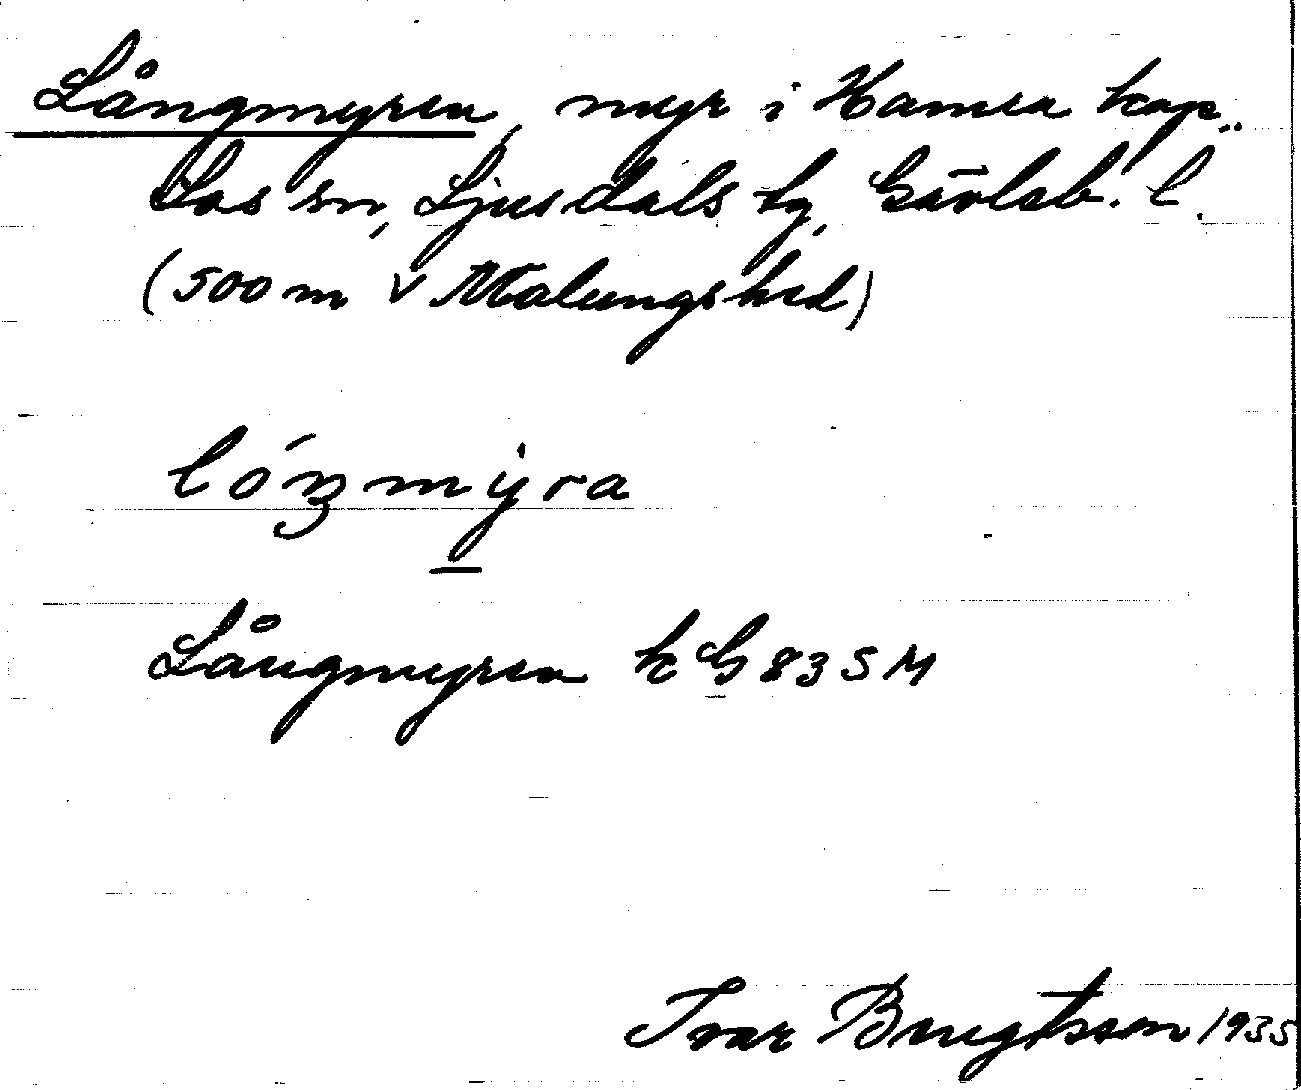 Långmyren, myr i Hamra kap.,
Los sn, Ljusdals tg, Gävleb. l.
(500 m V Malungshed)
lóŋmỳra
Långmyren k G 83 SM
Ivar Bengtsson 1935